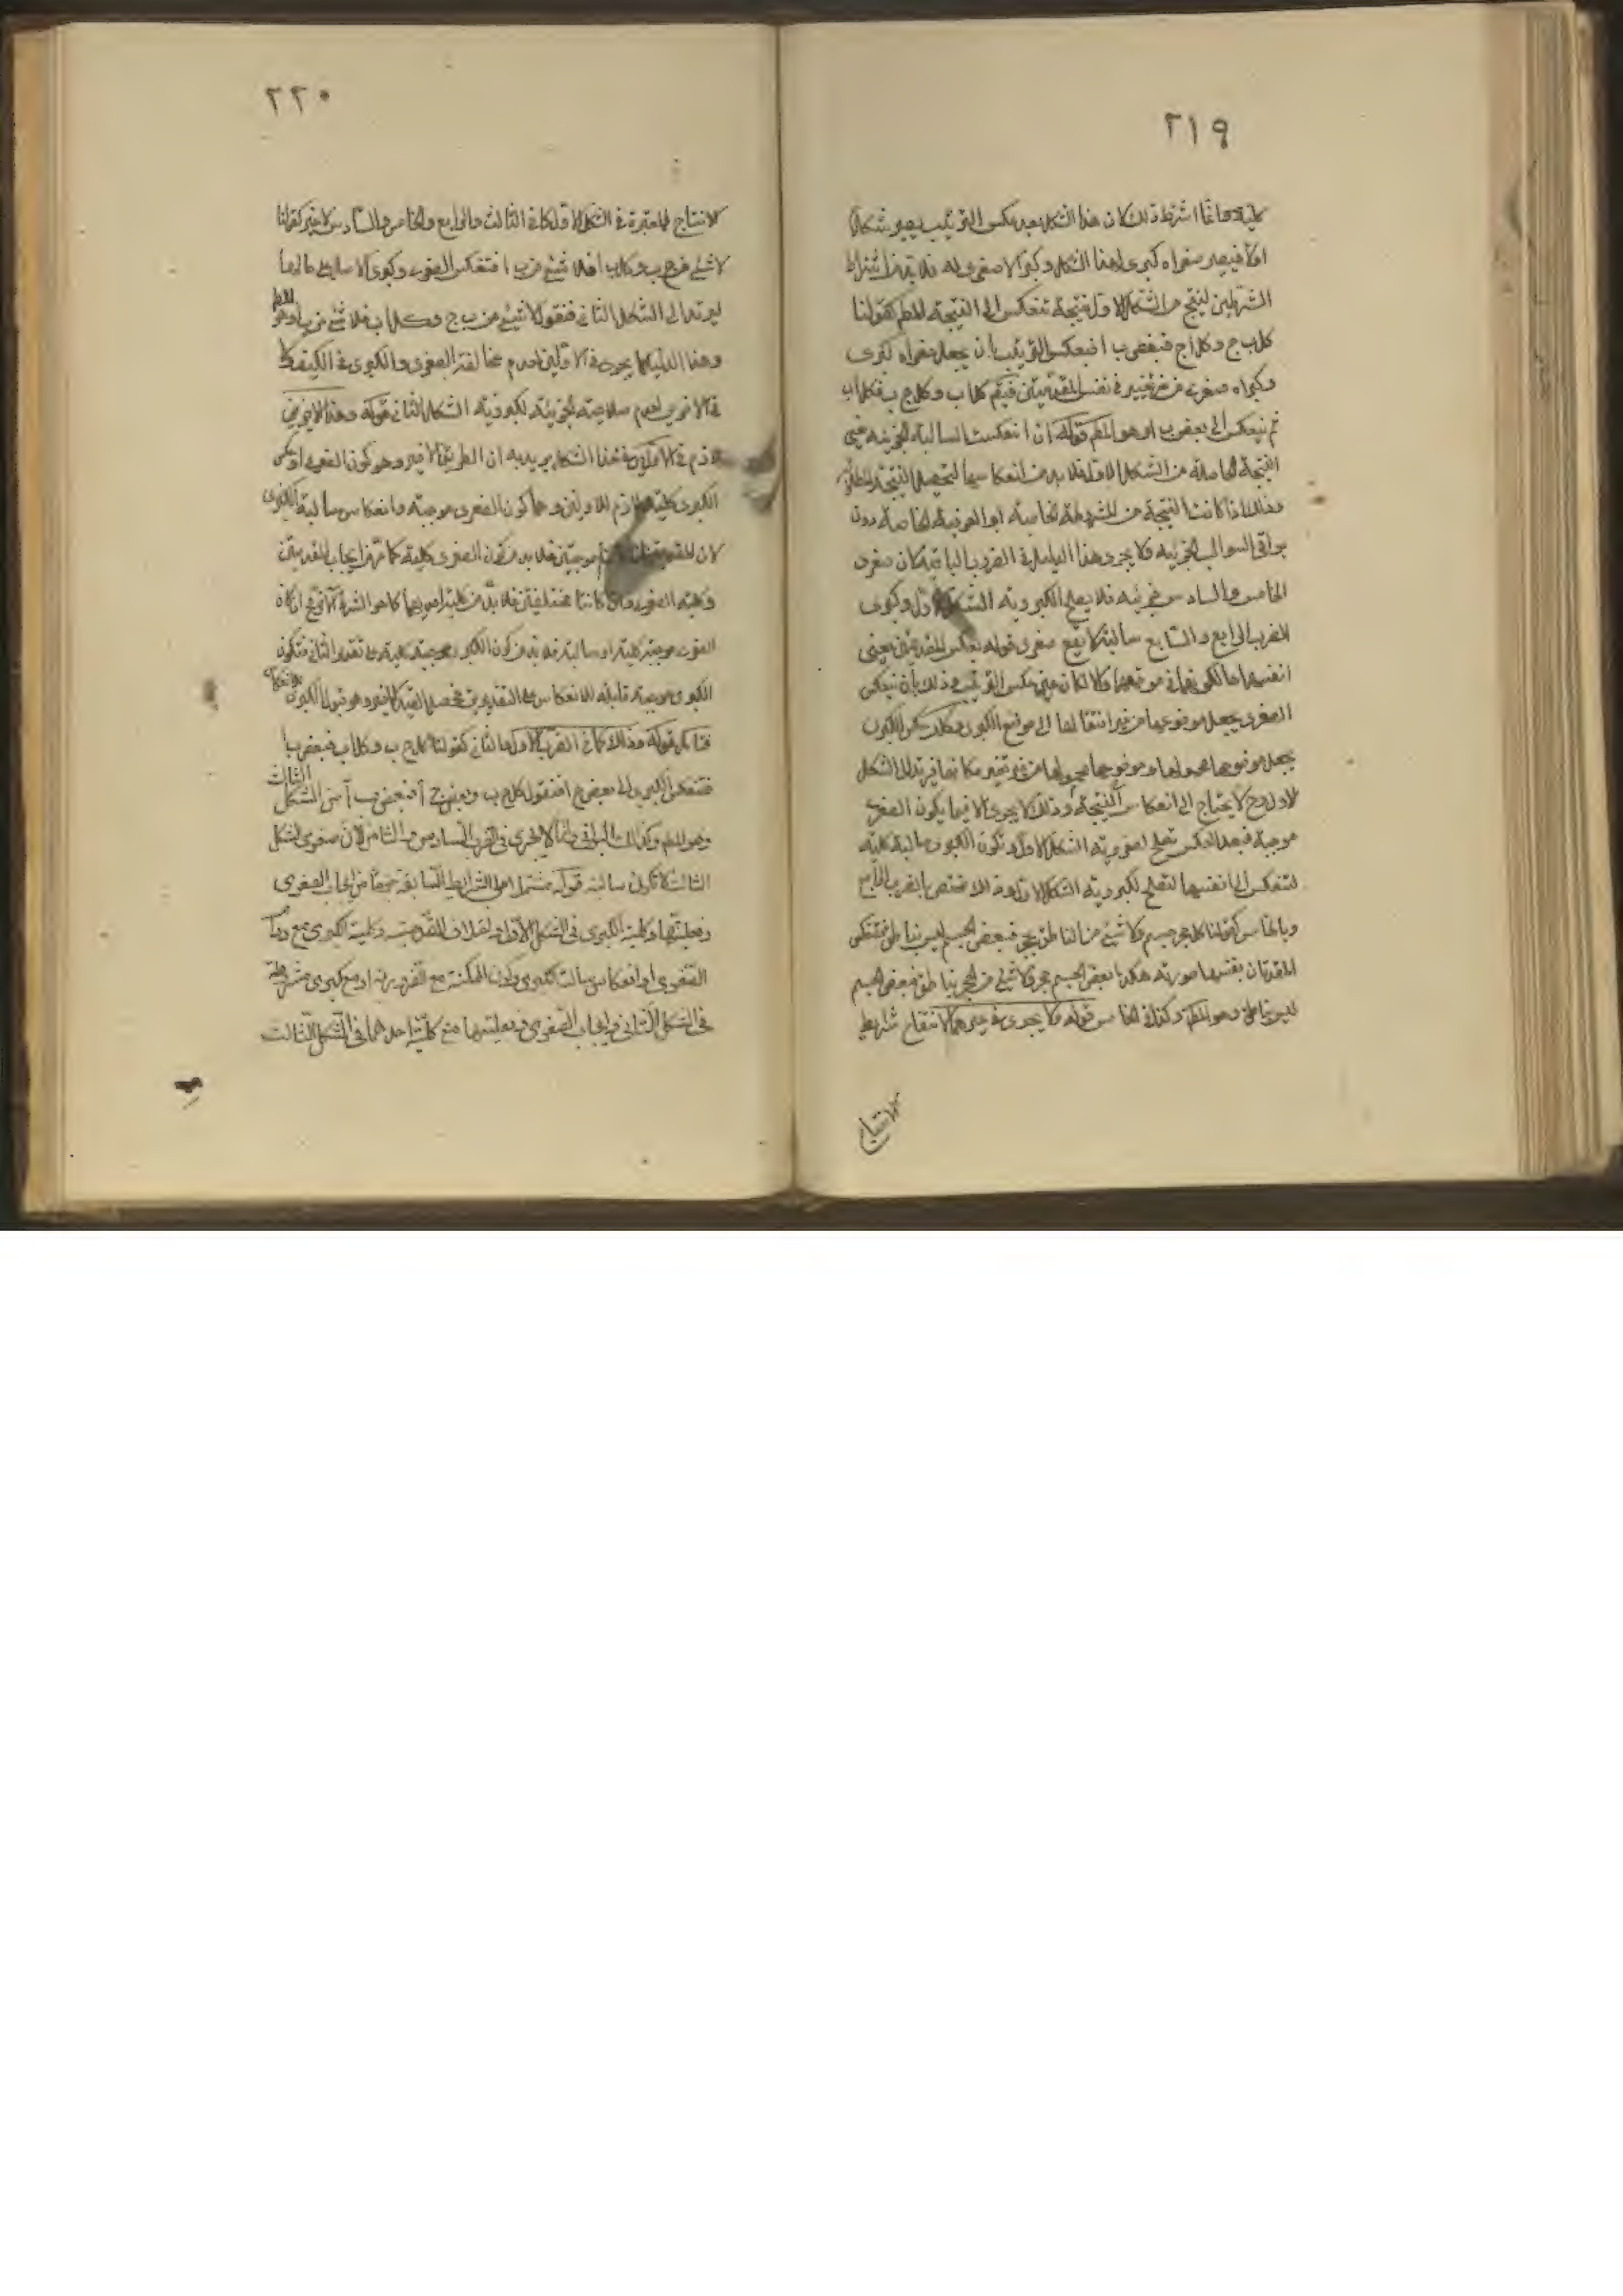 ٢١٩
كلية وانما اشترط ذلك لان هذا الشكل بعد عكس الترتيب يصير شكلا
اولا فيصير صغراه كبرى لهذا الشكل وكبراه صغرى له فلا بد من اشتراط
الشرطين لينتج من الشكل الاول نتيجة تنعكس الى النتيجة المطم كقولنا
كل ب ج وكل ا ج فبعض ب ا فبعكس الترتيب بان يجعل صغراه كبرى
وكبراه صغرى من غير تغيير في نفس المقدمتين فيتم كل ا ب وكل ب ج فكل ا ج
ثم ينعكس الى بعض ب ا وهو المطم قوله ان انعكست السالبة الجزئية يعني
النتيجة الحاصلة من الشكل الاول فلا بد من انعكاسها لتحصل النتيجة المطلوبة
وذلك اذا كانت النتيجة من المشروطة الخاصة او العرفية الخاصة دون
بواقي السوالب الجزئية ولا يجري هذا الدليل في الضروب الباقية لان صغرى
الخامس والسادس جزئية فلا يصلح لكبروية الشكل الاول وكبرى
الضرب الرابع والسابع سالبة لا يقع صغرى قوله بعكس المقدمتين يعني
انفسهما حال كونهما في موضعهما ولا لكان عين عكس الترتيب وذلك بان ينعكس
الصغرى يجعل موضوعها من غير انتقالها الى موضع الكبرى وكذلك عكس الكبرى
يجعل موضوعها محمولها وموضوعها محمولها من غير تغيير مكانها فيرتد الى الشكل
الاول وح لا يحتاج الى انعكاس النتيجة وذلك لا يجري الا فيما يكون الصغرى
موجبة فبعد العكس تصلح لصغروية الشكل الاول وتكون الكبرى سالبة كلية
لتنعكس الى نفسها لتصلح لكبروية الشكل الاول وهذا مختص بالضرب الرابع
وبالخامس كقولنا كل حجر جسم ولا شيء من الناطق بحجر فبعض الجسم ليس بناطق فتنعكس
المقدمتان بنفسهما صورته هكذا بعض الجسم حجر ولا شيء من الحجر بناطق فبعض الجسم
ليس بناطق وهو المطم وكذا في الخامس قوله ولا يجري في غيرهما لانتفاء شرايط
الانتاج
٢٢٠
الانتاج المعتبرة في الشكل الاول كما في الثالث والرابع والخامس والسادس لا غير كقولنا
لا شيء من ج ب وكل ب ا فلا شيء من ب ا فتنعكس الصغرى وكبرى الاصل على حالها
ليرتد الى الشكل الثاني فنقول لا شيء من ب ج وكل ا ب فلا شيء من ب ا وهو المطم
وهذا الدليل لا يجري في الاولين لعدم مخالفة الصغرى والكبرى في الكيف ولا
في الاخيرين لعدم صلاحية الجزئية لكبروية الشكل الثاني قوله وهذا الاخير
لازم في الاولين في هذا الشكل يريد به ان الطريق الاخير وهو كون الصغرى او عكس
الكبرى كلية لازم للاولين وهما كون الصغرى موجبة وانعكاس سالبة الكبرى
لان المقدمتين موجبتين فلا بد من كون الصغرى كلية كما مر من ايجاب المقدمتين
وكلية الصغرى وان كانتا مختلفتين فلا بد من كلية احديهما كما هو الشرط الثاني في ان كان
الصغرى موجبة كلية او سالبة فلا بد من كون الكبرى موجبة كلية على تقدير الثاني فتكون
الكبرى موجبة قابلة للانعكاس على التقديرين فحصل القيد الاخير وهو قبول الكبرى للانعكاس
فتأمل قوله وذلك كما في الضرب الاول والثاني كقولنا كل ج ب وكل ا ب فبعض ب ا
فتنعكس الكبرى الى بعض ج ا فنقول كل ج ب وبعض ج ا فبعض ب ا من الشكل الثالث
وهو المطم وكذلك البواقي وانما لا يجري في الضرب السادس والثامن لان صغرى الشكل
الثالث لا تكون سالبة قوله مشتمل على الشرايط السابقة جميعا من ايجاب الصغرى
وفعليتها وكلية الكبرى في الشكل الاول واختلاف المقدمتين وكلية الكبرى مع دوام
الصغرى او انعكاس سالبة الكبرى وكون الممكنة مع الضرورية او مع كبرى مشروطة
في الشكل الثاني وايجاب الصغرى وفعليتها مع كلية احديهما في الشكل الثالث